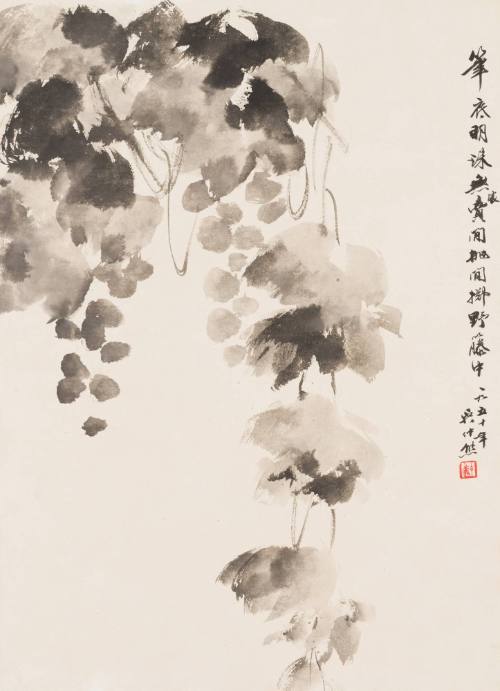 筆底明珠無處賣閒拋閒擲野藤中一九五十年
吳仲熊